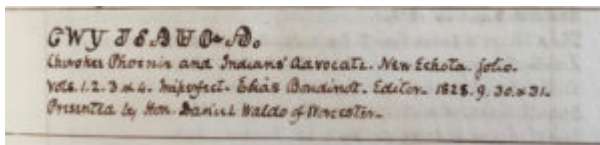 ᏣᎳᎩ ᏧᎴᎯᏌᏅᎯ.
Cherokee Phoenix and Indians' Advocate. New Echota. folio.
Vols. 1. 2. 3 & 4. Imperfect. Elias Boudinot. Editor. 1828. 9. 30. & 31.
Presented by Hon. Daniel Waldo of Worcester.